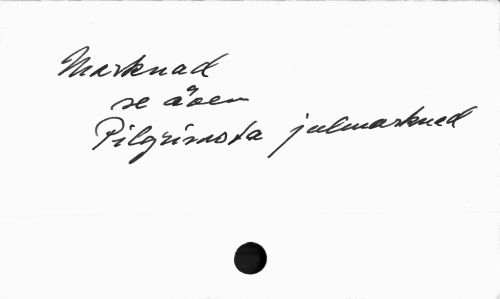 Marknad
se även
Pilgrimsta julmarknad